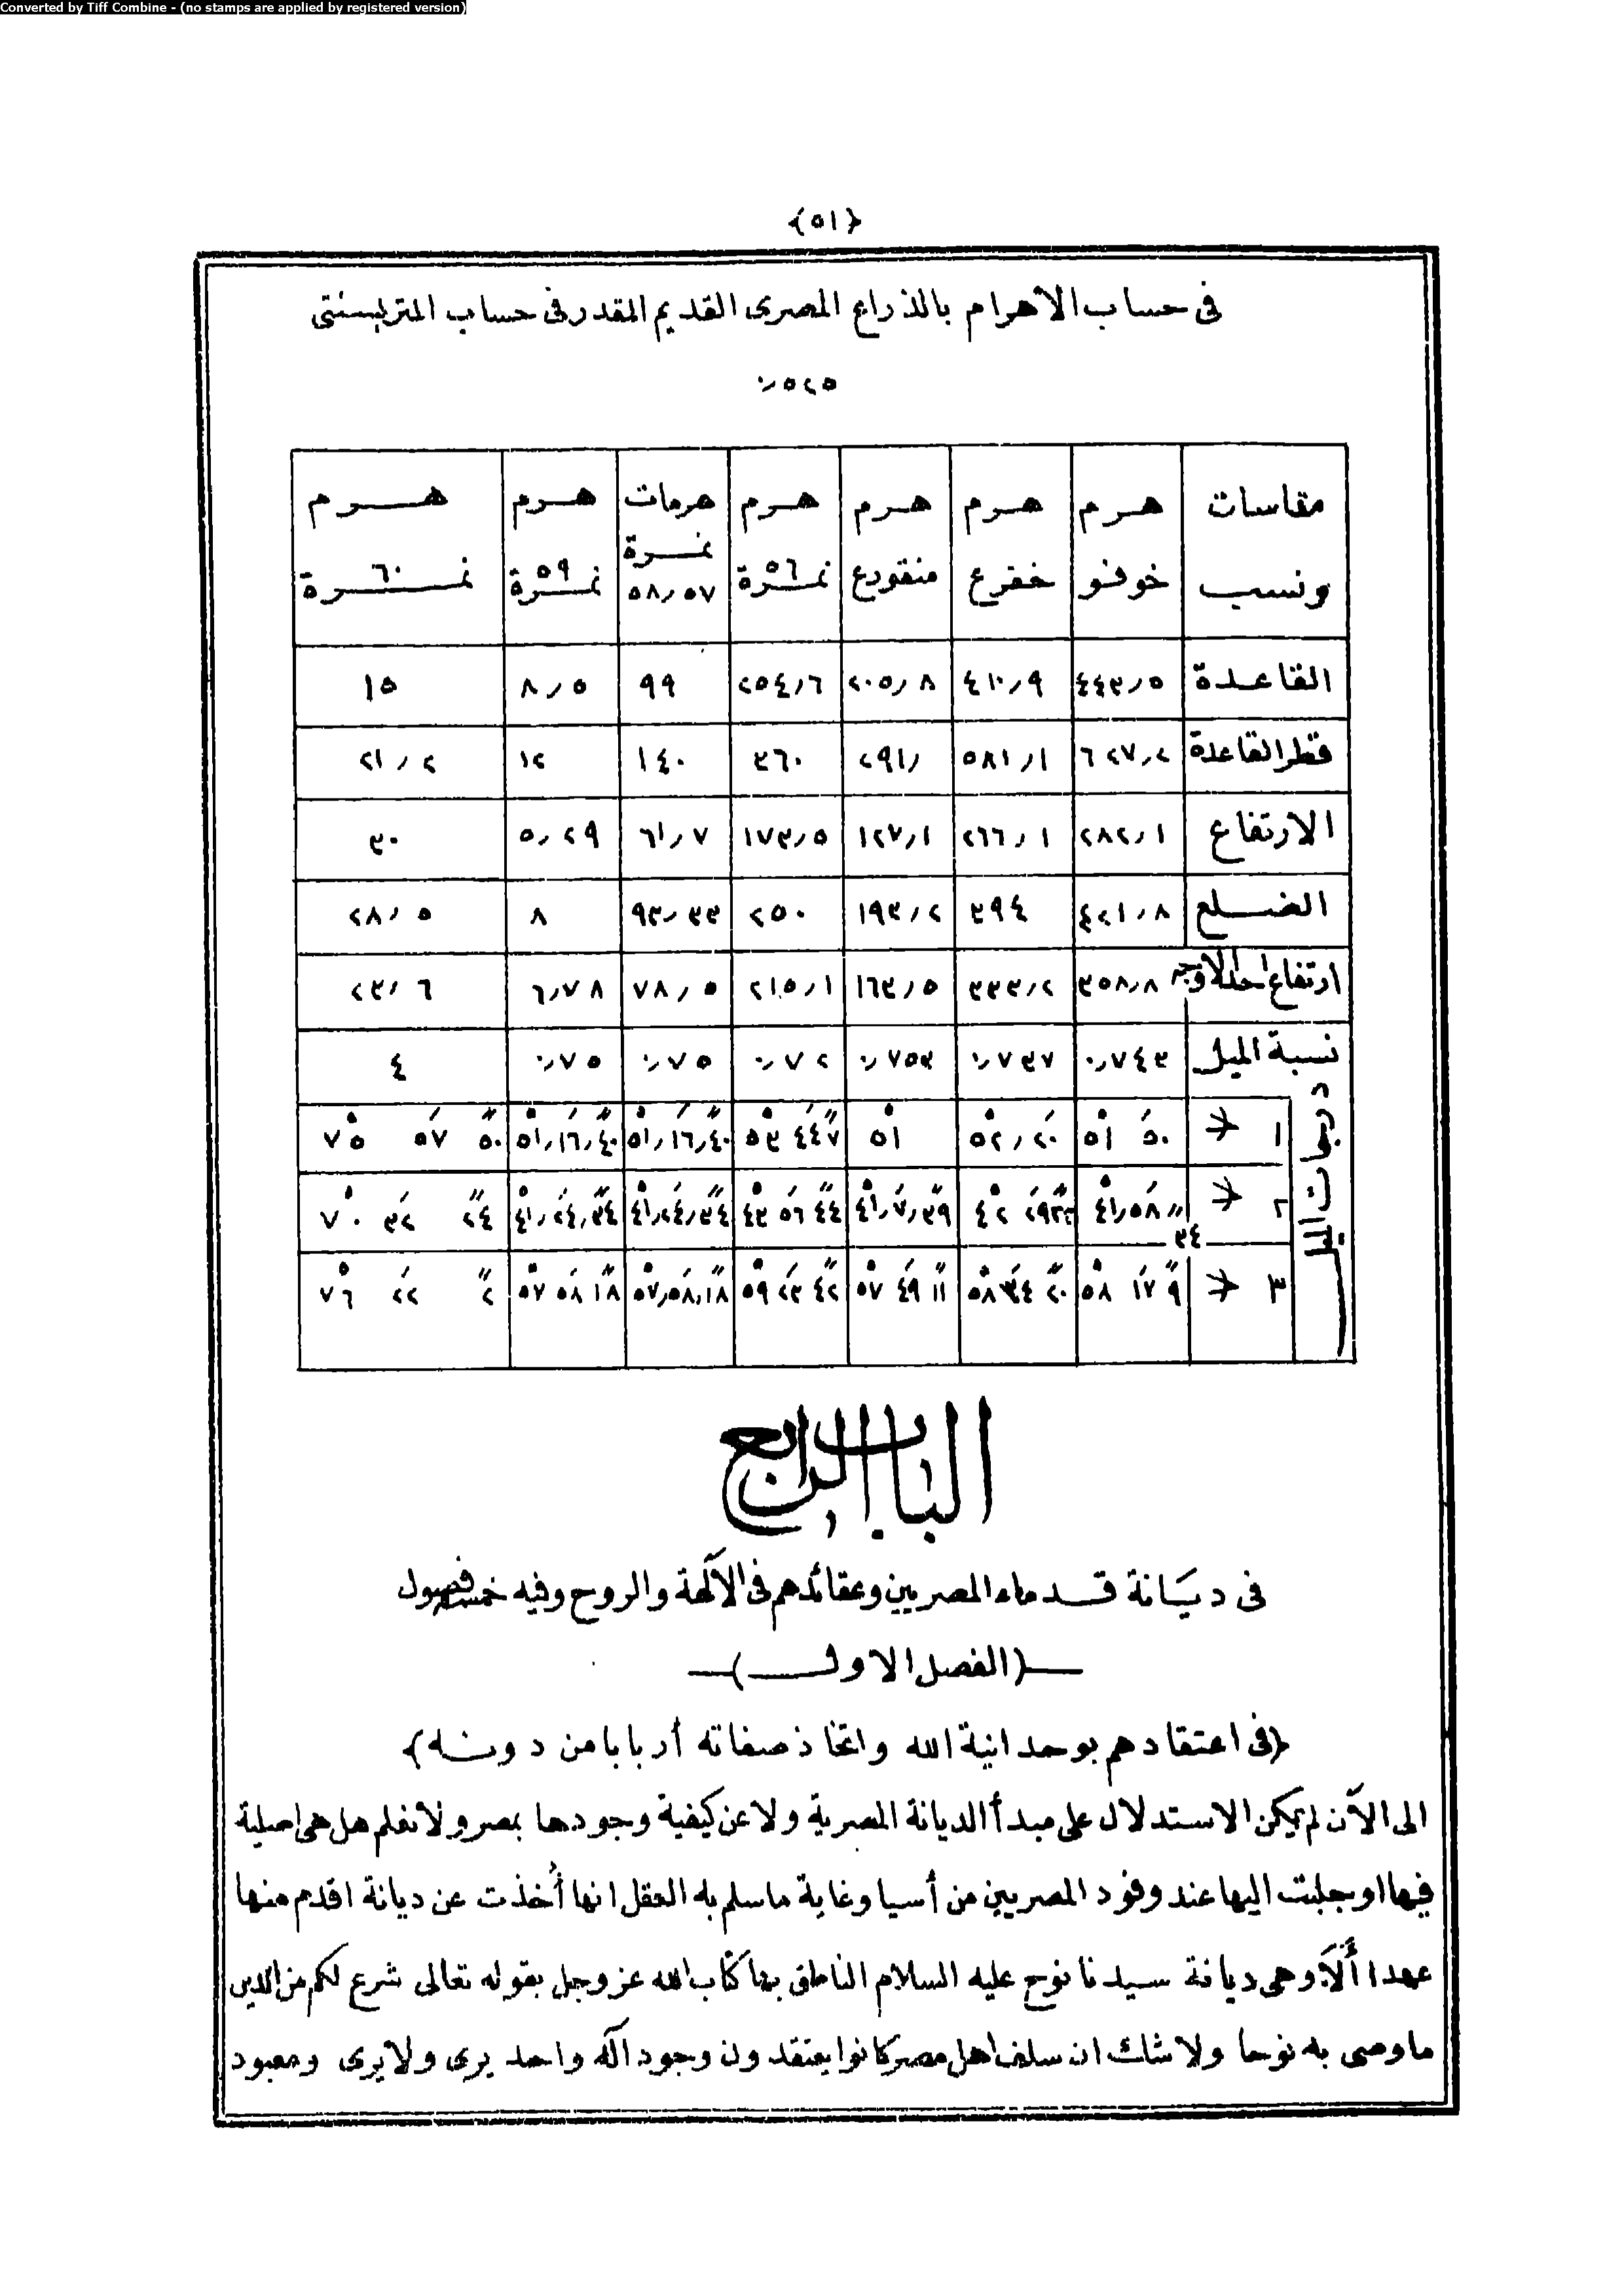 Converted by Tiff Combine - (no stamps are applied by registered version)
{٥١}
فى حساب الأهرام بالذراع المصرى القديم المقدر فى حساب المتر بسنتى
٠٫٥٢٥
مقاسات ونسب | هرم خوفو | هرم خفرع | هرم منقورع | هرم نمرة ٥٦ | هرمات نمرة ٥٨٫٥٧ | هرم نمرة ٥٩ | هرم نمرة ٦٠
القاعدة | ٤٤٣٫٥ | ٤١٠٫٩ | ٢٠٥٫٨ | ٢٥٤٫٦ | ٩٩ | ٨٫٥ | ١٥
قطر القاعدة | ٦٢٧٫٢ | ٥٨١٫١ | ٢٩١٫ | ٣٦٠ | ١٤٠ | ١٢ | ٢١٫٢
الارتفاع | ٢٨٢٫١ | ٢٦٦٫١ | ١٢٧٫١ | ١٧٣٫٥ | ٦١٫٧ | ٥٫٢٩ | ٣٠
الضلع | ٤٢١٫٨ | ٣٩٤ | ١٩٣٫٢ | ٢٥٠ | ٩٣٫٣٣ | ٨ | ٢٨٫٥
ارتفاع احد الاوجه | ٣٥٨٫٨ | ٣٣٣٫٢ | ١٦٣٫٥ | ٢١٥٫١ | ٧٨٫٥ | ٦٫٧٨ | ٢٣٫٦
نسبة الميل | ٠٫٧٤٣ | ٠٫٧٣٧ | ٠٫٧٥٣ | ٠٫٧٢ | ٠٫٧٥ | ٠٫٧٥ | ٤
الميل
١ | ٥١° ٥٠′ | ٥٢°٫٢٠′ | ٥١° | ٥٣° ٤٤′ ٧″ | ٥١°٫١٦′٫٤٠″ | ٥١°٫١٦′٫٤٠″ | ٧٥° ٥٧′ ٥٠″
٢ | ٤١°٫٥٨′ ٣٤″ | ٤٢° ٢٩′ ٣٣″ | ٤١°٫٧′٫٣٩″ | ٤٣° ٥٦′ ٤٤″ | ٤١°٫٢٤′٫٣٤″ | ٤١°٫٢٤′٫٣٤″ | ٧٠° ٣٢′ ٢٤″
٣ | ٥٨° ١٧′ ٩″ | ٥٨° ٣٤′ ٢٠″ | ٥٧° ٤٩′ ١١″ | ٥٩° ٢٣′ ٤٢″ | ٥٧°٫٥٨′٫١٨″ | ٥٧° ٥٨′ ١٨″ | ٧٦° ٢٢′ ٢″
الباب الرابع
فى ديانة قدماء المصريين وعقائدهم فى الآلهة والروح وفيه خمسة فصول
(الفصل الاول)
(فى اعتقادهم بوحدانية الله واتخاذ صفاته أربابا من دونه)
الى الآن لم يمكن الاستدلال على مبدأ الديانة المصرية ولا عن كيفية وجودها بمصر ولا نعلم هل هى اصلية
فيها او جلبت اليها عند وفود المصريين من أسيا وغاية ما سلم به العقل انها أُخذت عن ديانة اقدم منها
عهدا أَلَا وهى ديانة سيدنا نوح عليه السلام الناطق بها كتاب الله عز وجل بقوله تعالى شرع لكم من الدين
ما وصى به نوحا ولا شك ان سلف اهل مصر كانوا يعتقدون وجود آله واحد يرى ولا يرى ومعبود